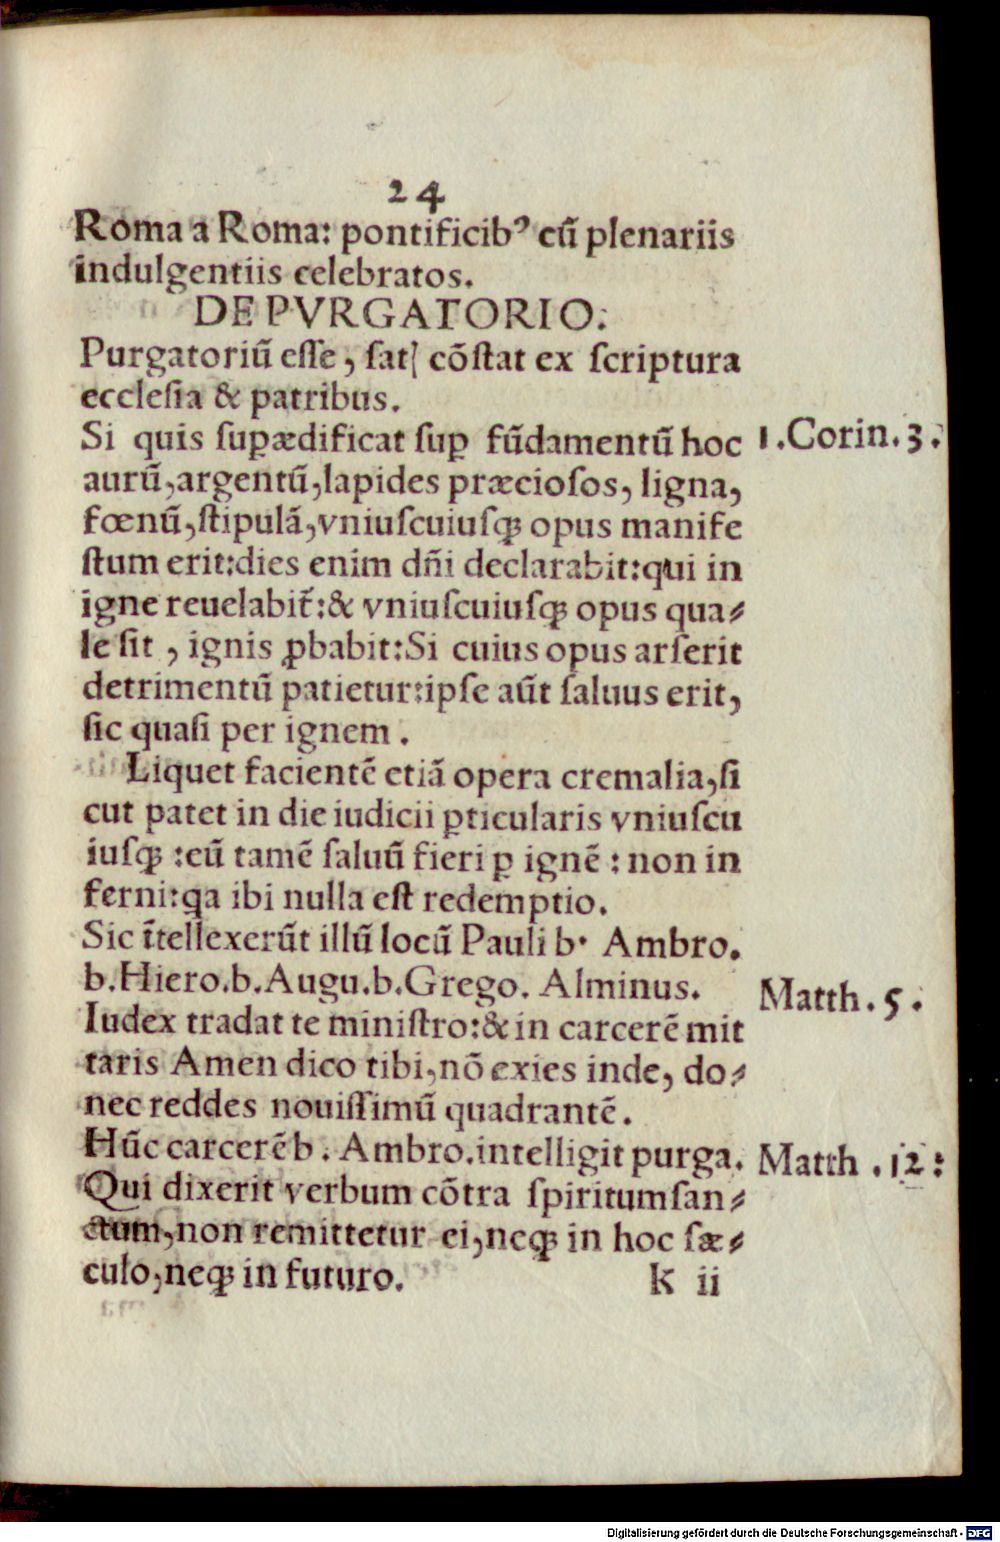 24
Roma a Roma: pontificibꝰ cũ plenariis
indulgentiis celebratos.
DE PVRGATORIO.
Purgatoriũ eſſe, ſat cõſtat ex ſcriptura
eccleſia & patribus.
Si quis ſuꝑædificat ſuꝑ fũdamentũ hoc
1.Corin.3.
aurũ,argentũ,lapides præcioſos, ligna,
fœnũ,ſtipulã,vniuſcuiuſꝗ opus manife
ſtum erit:dies enim dñi declarabit:qui in
igne reuelabit̃:& vniuſcuiuſꝗ opus qua⸗
le ſit , ignis ꝓbabit:Si cuius opus arſerit
detrimentũ patietur:ipſe aũt ſaluus erit,
ſic quaſi per ignem .
Liquet facientẽ etiã opera cremalia,ſi
cut patet in die iudicii ꝑticularis vniuſcu
iuſꝗ :eũ tamẽ ſaluũ fieri ꝑ ignẽ : non in
ferni:qa ibi nulla eſt redemptio.
Sic ĩtellexerũt illũ locũ Pauli b· Ambro.
b.Hiero.b.Augu.b.Grego. Alminus.
Matth.5.
Iudex tradat te miniſtro:& in carcerẽ mit
taris Amen dico tibi,nõ exies inde, do⸗
nec reddes nouiſſimũ quadrantẽ.
Hũc carcerẽ b . Ambro.intelligit purga.
Matth .12:
Qui dixerit verbum cõtra ſpiritumſan⸗
ctum,non remittetur ei,neꝗ in hoc ſæ⸗
culo,neꝗ in futuro.
k ii
Digitalisierung gefördert durch die Deutsche Forschungsgemeinschaft - DFG